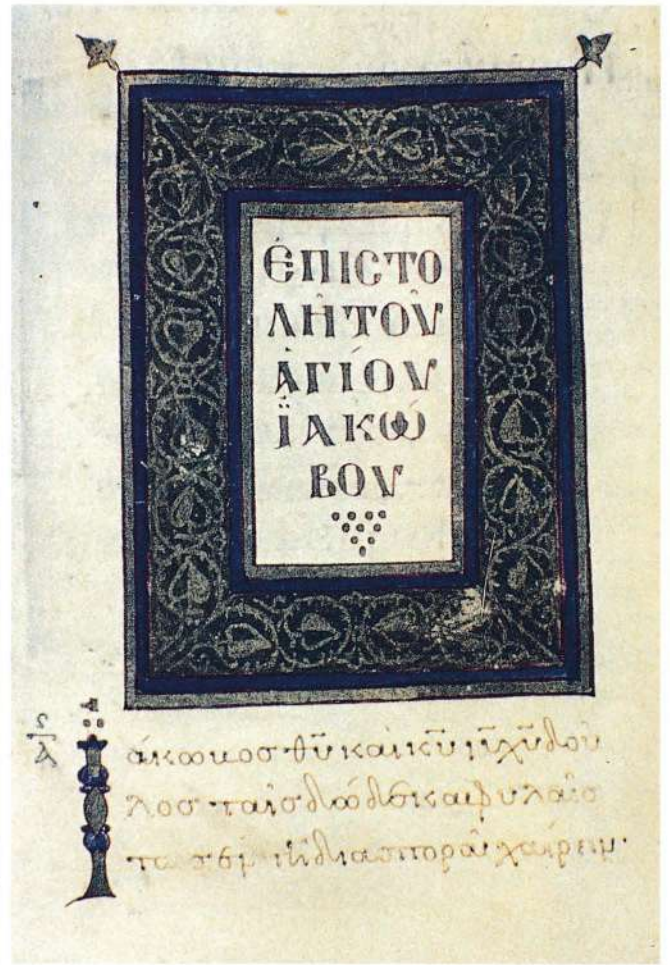 ἘΠΙCΤΟ
ΛῊΤΟΥ͂
ἉΓΊΟΥ
ΪΑΚΏ
ΒΟΥ
Ἰάκωβος θ̅υ̅ καὶ κ̅υ̅ ι̅υ̅ χ̅υ̅ δοῦ
λος ταῖς δώδεκα φυλαῖς
ταῖς ἐν τῆ διασπορᾶ χαίρειν·